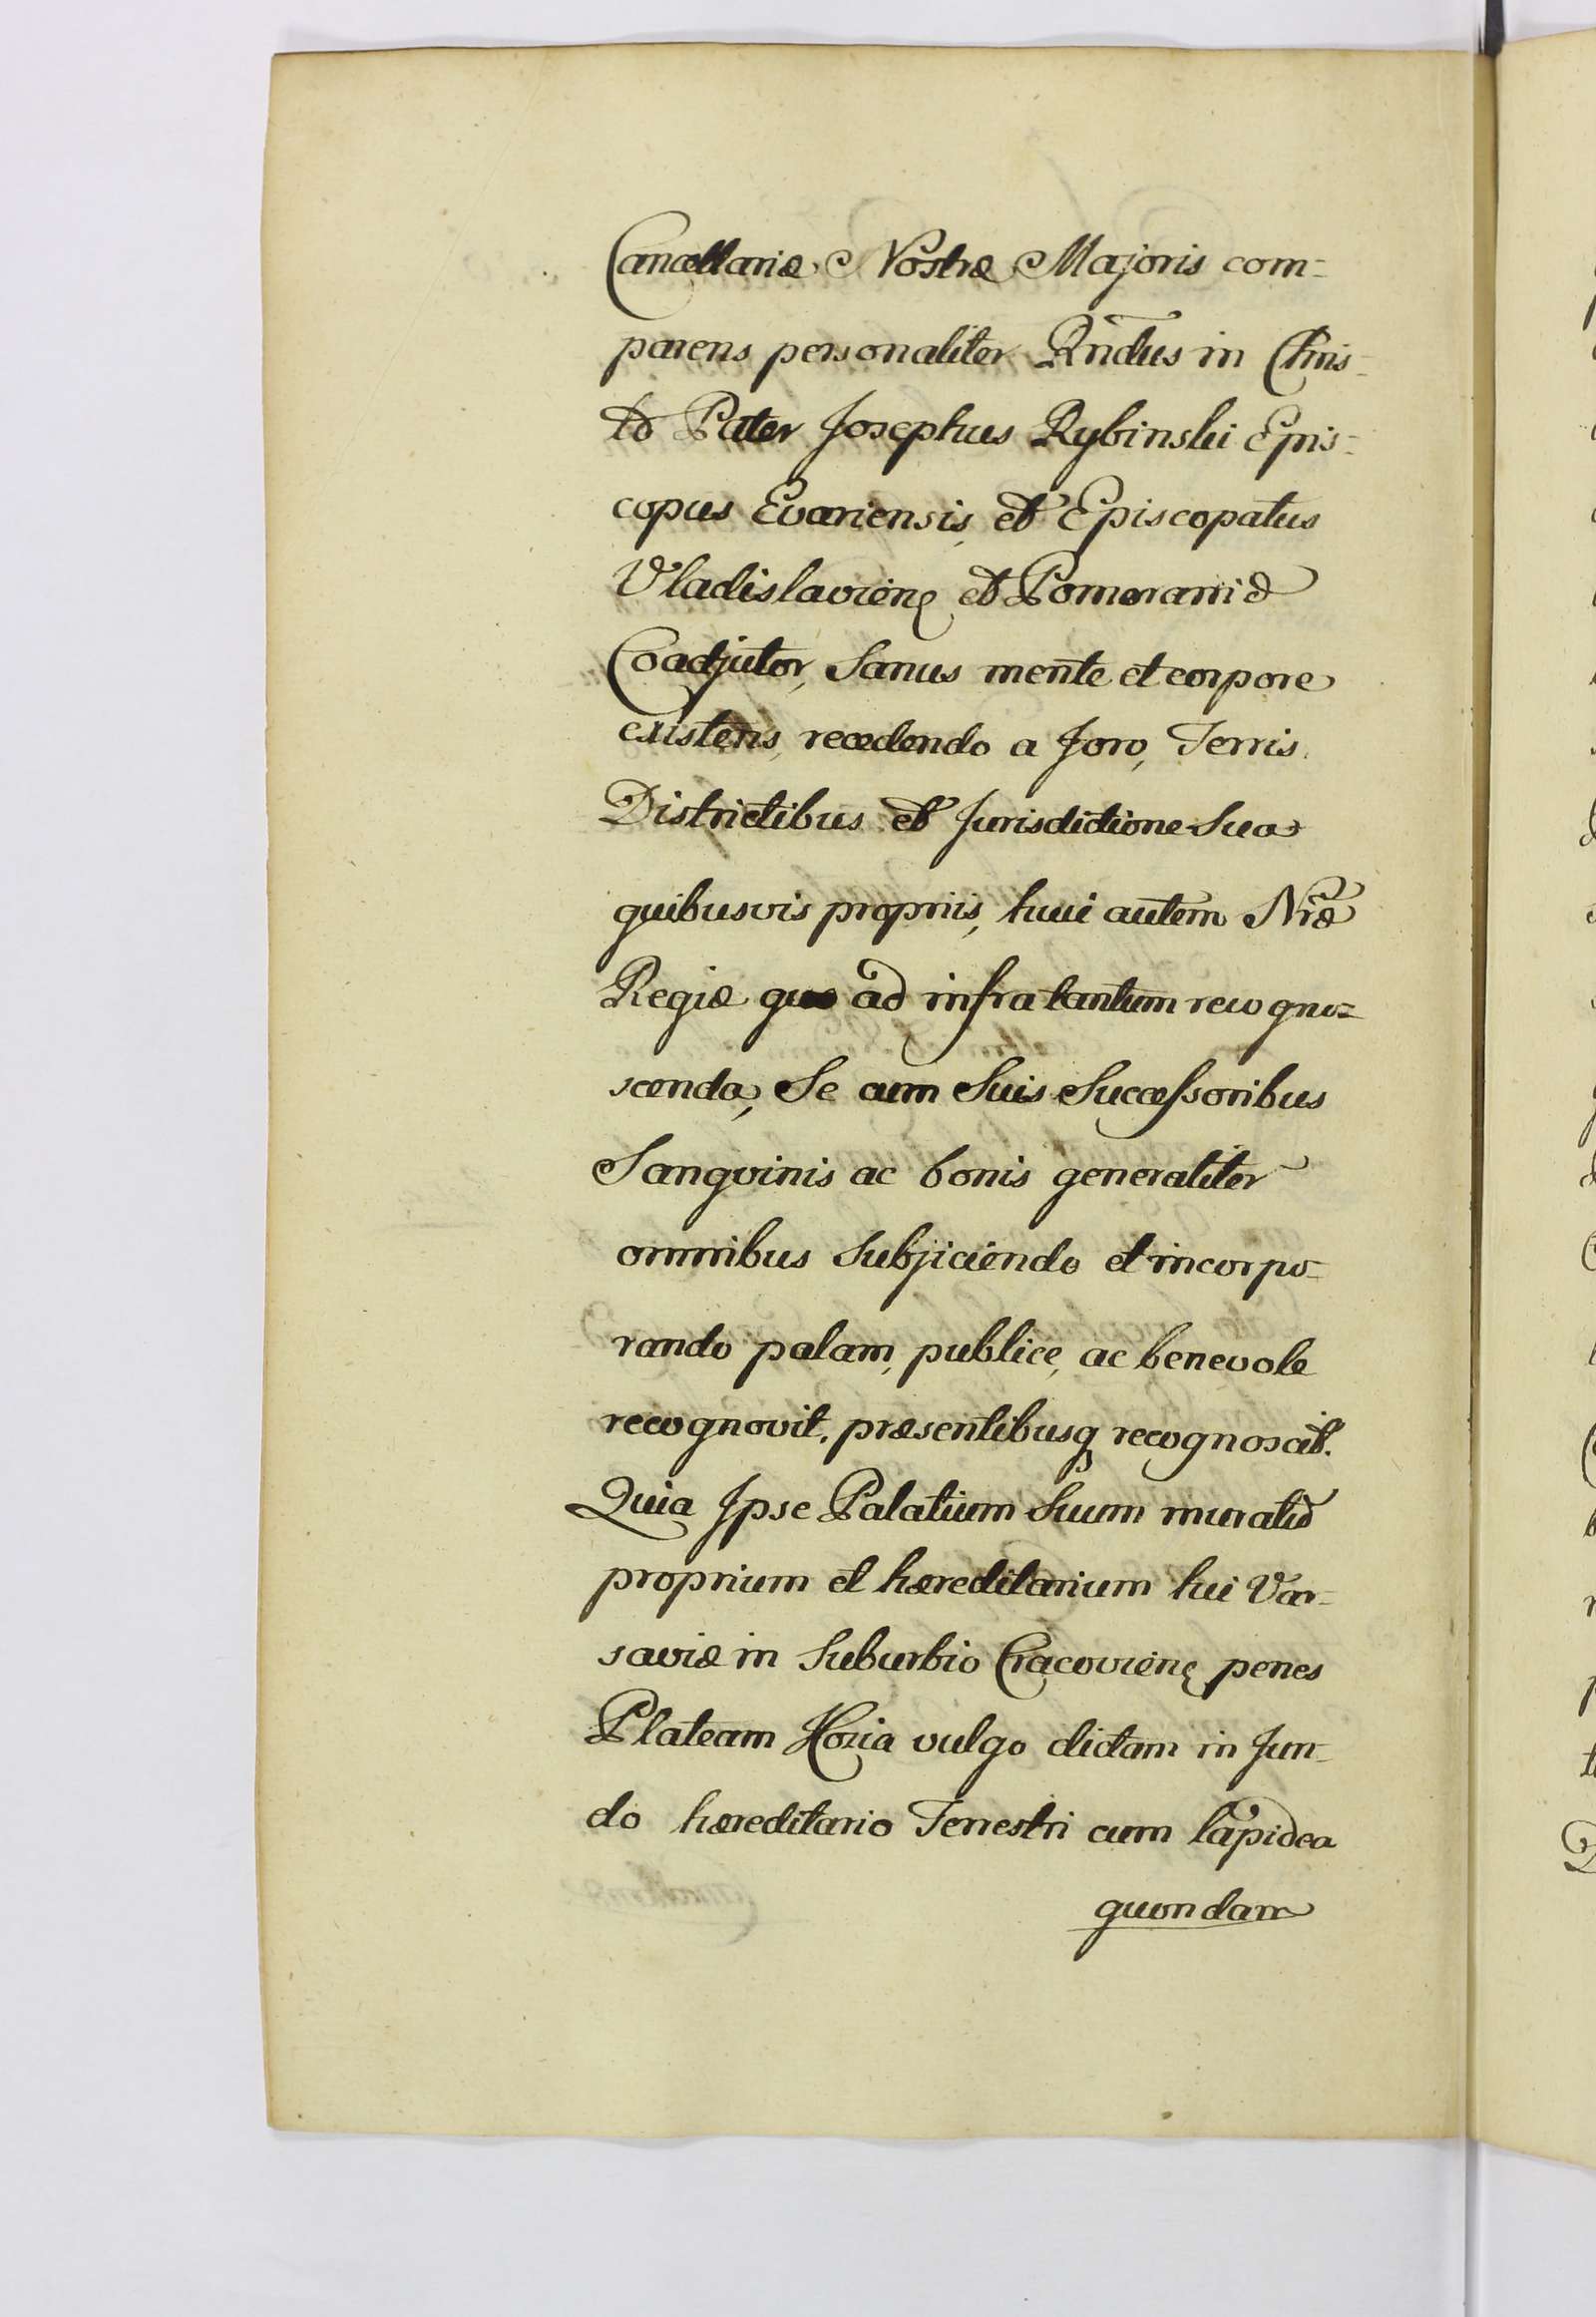 Cancellariæ Nostræ Majoris com-
parens personaliter Rñdus in Chris-
to Pater Josephus Rybinski Epis-
copus Evariensis, et Episcopatus
Vladislavienę et Pomeraniæ
Coadjutor, Sanus mente et corpore
existens, recedendo a foro, Terris,
Districtibus et Jurisdictione Sua
quibusvis propriis, huic autem Nræ
Regiæ quo ad infra tantum recogno-
scenda, Se cum Suis Successoribus
Sangvinis ac bonis generaliter
omnibus Subjiciendo et incorpo-
rando palam, publice, ac benevole
recognovit, præsentibusq recognoscit.
Quia Ipse Palatium Suum muratū
proprium et hæreditarium hic Var-
saviæ in Suburbio Cracovienę penes
Plateam Kozia vulgo dictam in fun-
do hæreditario Terrestri cum lapidea
quondam